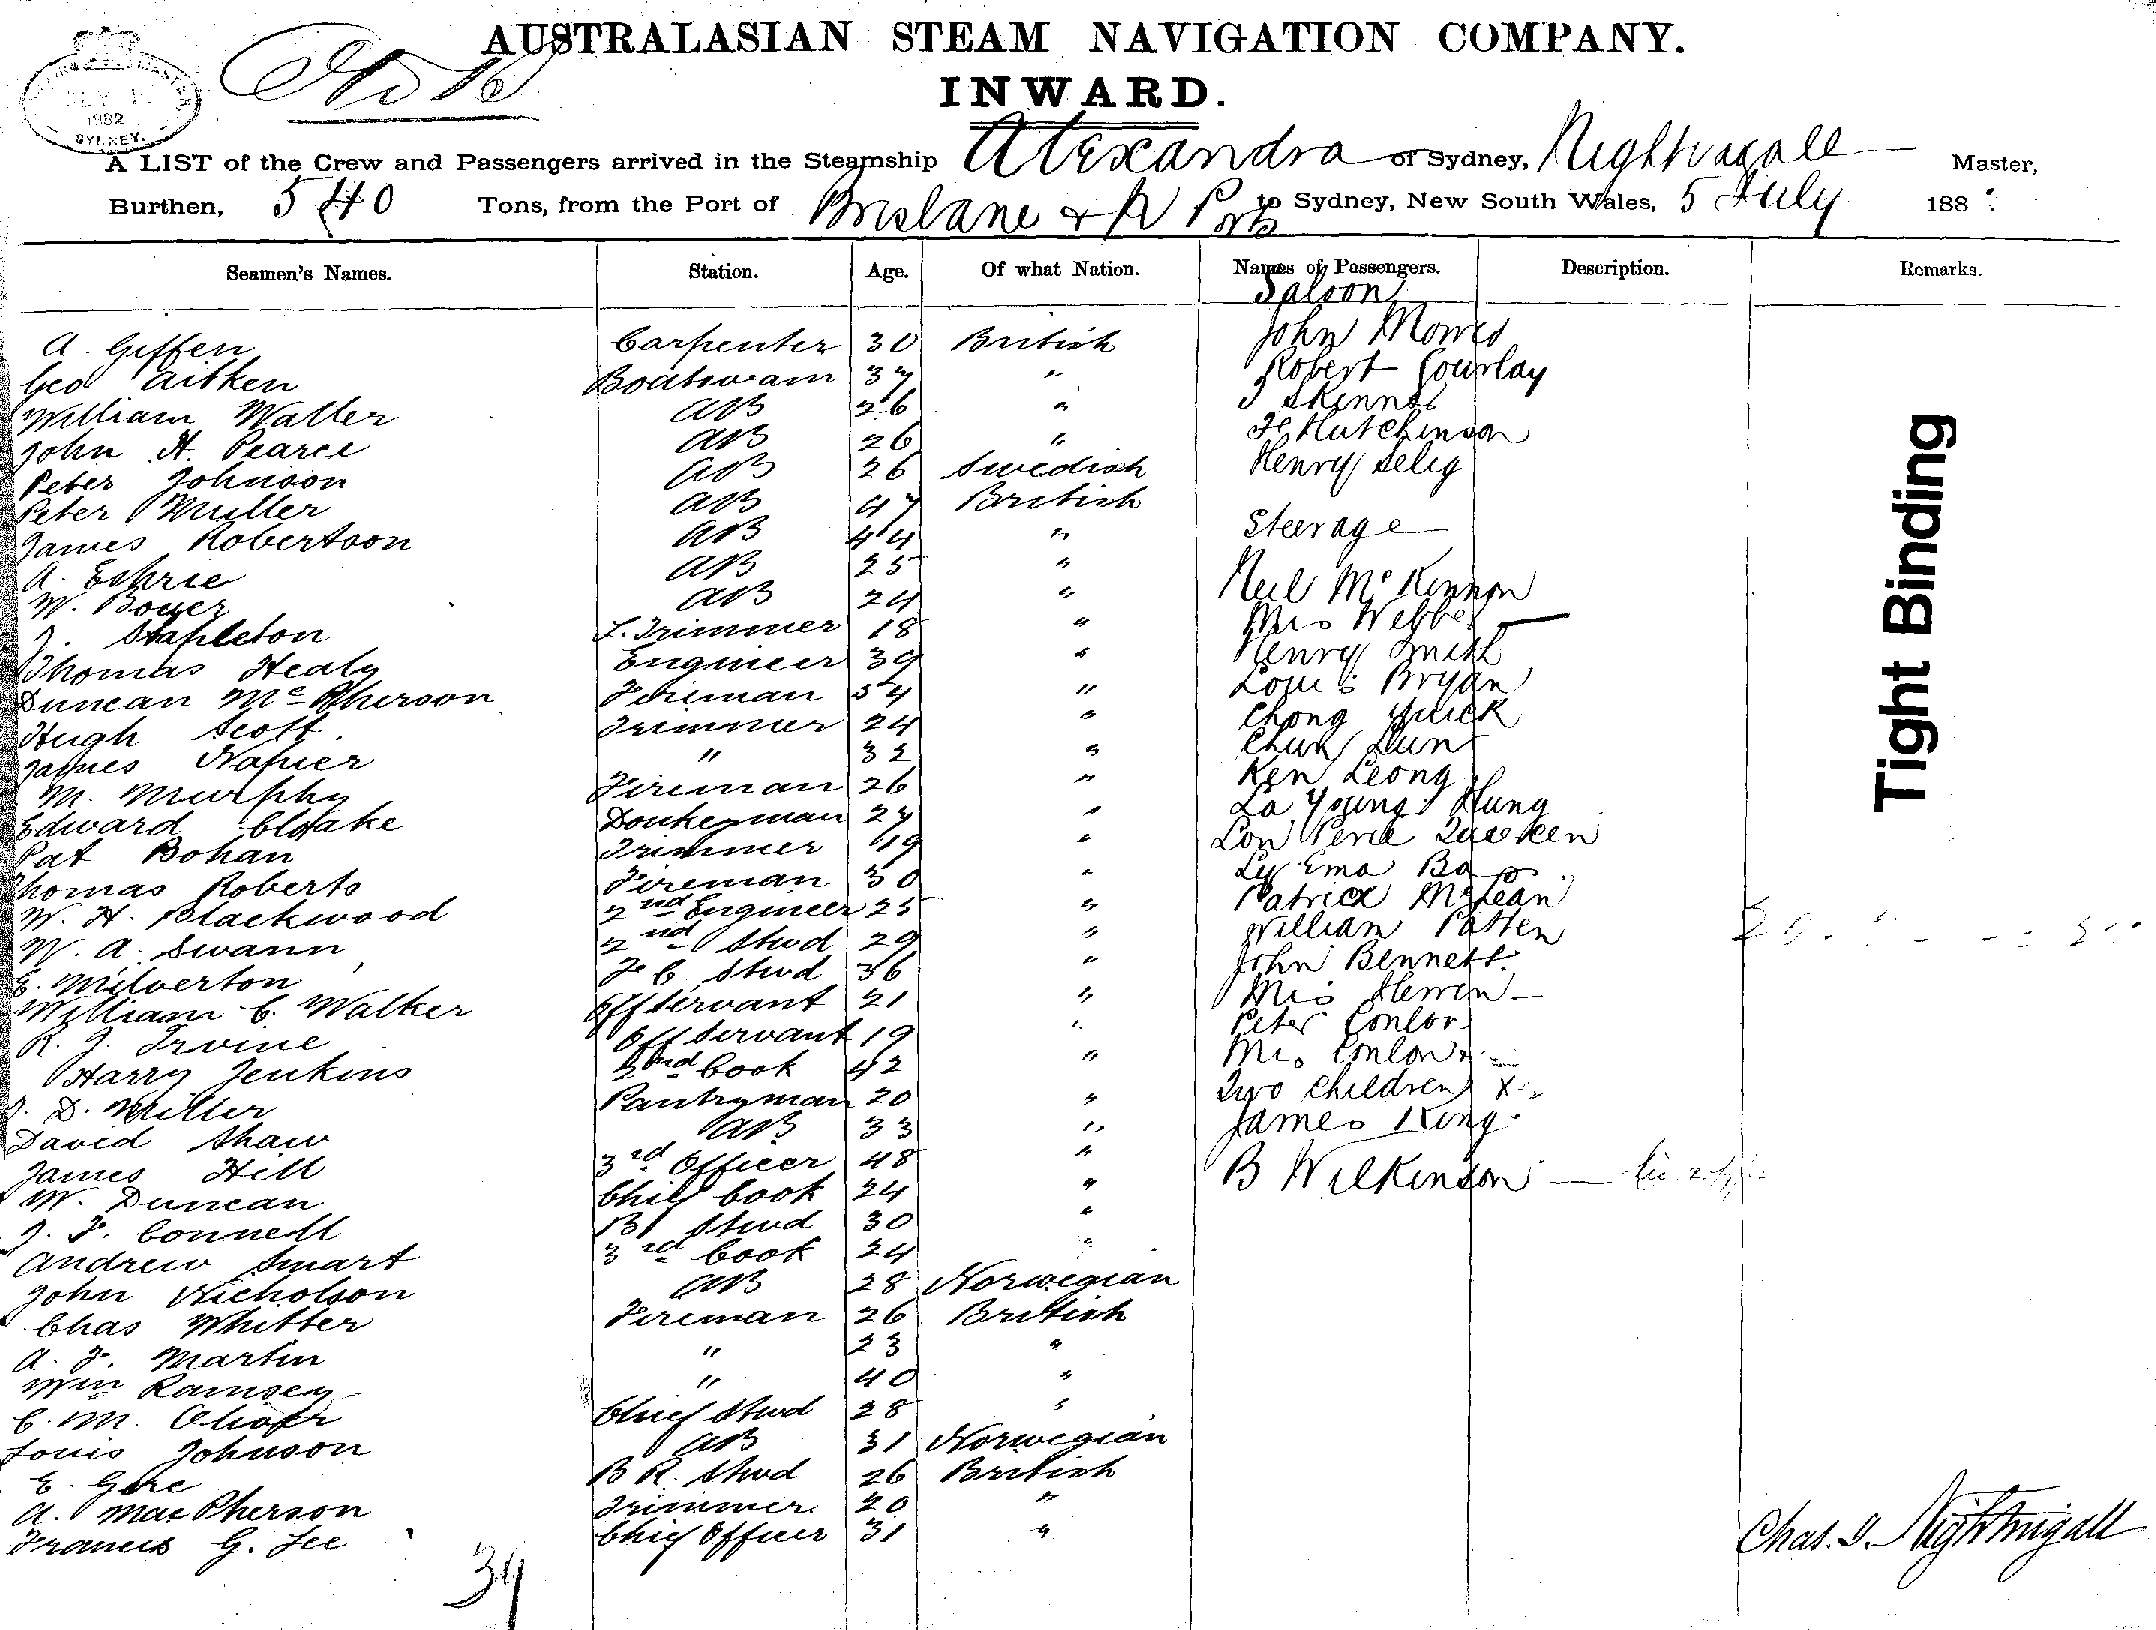 AUSTRALASIAN STEAM NAVIGATION COMPANY.
INWARD.
1882
SYDNEY.
A LIST of the Crew and Passengers arrived in the Steamship Alexandra of Sydney, Nightingall Master,
Burthen, 540 Tons, from the Port of Brisbane & R Ports to Sydney, New South Wales, 5 July 188
Seamen's Names. Station. Age. Of what Nation. Names of Passengers. Description. Remarks.
Saloon
A. Giffen Carpenter 30 British John
Geo Aitken Boatswain 37 " Robert Gourlay
William Waller AB 26 " J Skinner
John H. Pearce AB 26 " Hutchinson
Peter Johnson AB 26 Swedish Henry Selig
Peter Muller AB 47 British
James Robertson AB 44 " Steerage
A. Eshrie AB 25 "
W. Boyer AB 24 " Neil McKennon
J. Stapleton Trimmer 18 " Mrs Webber
Thomas Healy Engineer 39 " Henry Smith
Duncan McPherson Fireman 54 " Louis Bryan
Hugh Scott Trimmer 24 " Chong Yuick
James Napier " 32 " Chun Lun
M. Murphy Fireman 26 " Ken Leong
Edward Cloake Donkeyman 27 " La Young Hung
Pat Bohan Trimmer 19 " Lon
Thomas Roberts Fireman 30 " Ly Ema
W. H. Blackwood 2nd Engineer 25 " Patrick McLean
W. A. Swann 2nd Stwd 29 " William Patten
E. Milverton F C Stwd 36 " John Bennett
William C. Walker Off Servant 21 "
R. J. Irvine Off Servant 19 " Peter Conlon
Harry Jenkins 2nd Cook 42 " Mrs Conlon
J. D. Miller Pantryman 20 " Two Children
David Shaw AB 33 " James King
James Hill 3rd Officer 48 " B Wilkinson
W. Duncan Chief Cook 24 "
J. F. Connell Stwd 30 "
Andrew Smart 3rd Cook 24 "
John Nicholson AB 28 Norwegian
Chas Whitter Fireman 26 British
A. F. Martin " 23 "
Wm Ramsey " 40 "
C. M. Oliver Chief Stwd 28 "
Louis Johnson AB 31 Norwegian
E. Gore B R. Stwd 26 British
A. MacPherson Trimmer 20 "
Francis G. Lee Chief Officer 31 "
39
Chas. Nightingall
Tight Binding